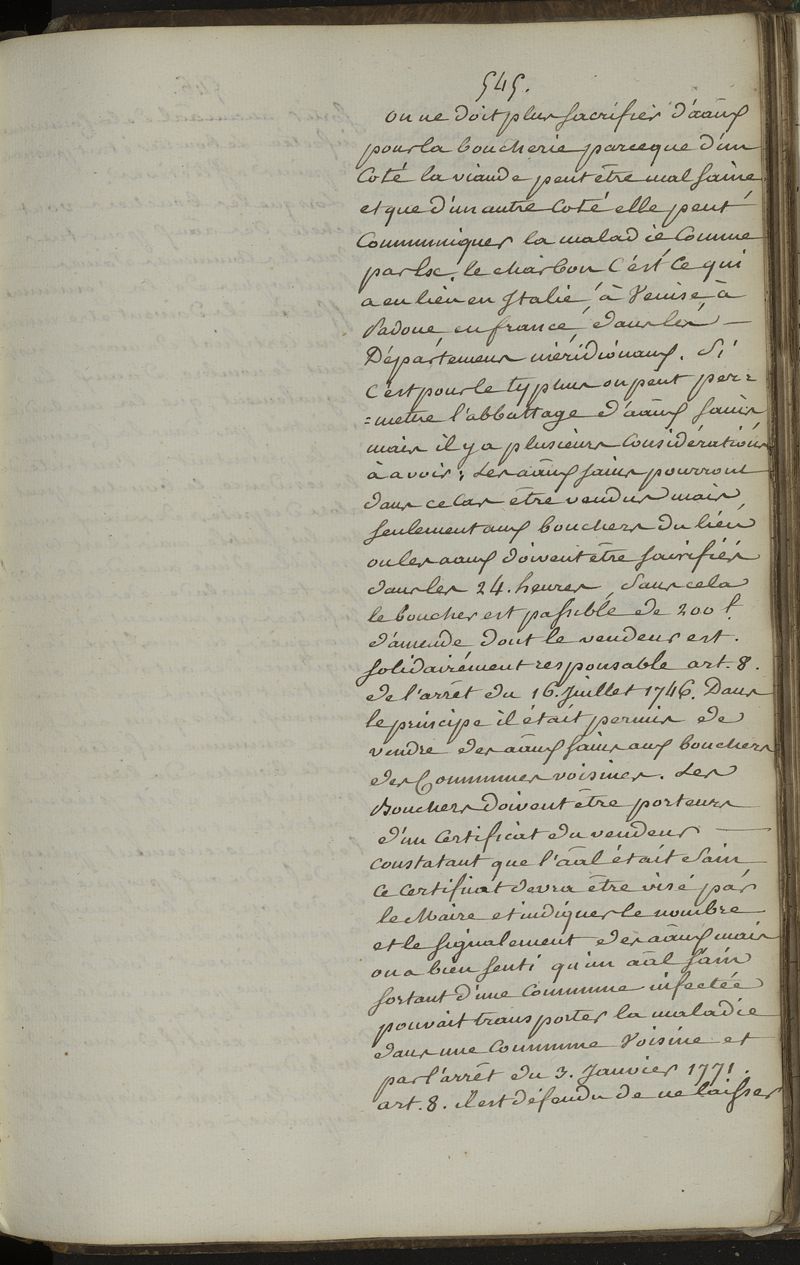 545.
on ne doit plus sacrifier d'aāux
pour la boucherie parceque d'un
Coté la viande peut être mal saine
et que d'un autre Coté elle peut
Communiquer la maladie Comme
par Ex. le charbon C'est Ce qui
a eu lieu en Italie, à Venise, à
Padoue en france, dans les —
Départemens méridionaux. Si
C'est pour le typhus on peut per=
=metre l'abbattage d'aāux sains
mais il y a plusieurs Considérations
à avoir; Les aāux sains pourront
dans ce Cas être vendus mais
seulement aux bouchers du lieu
ou les aaux doivent être sacrifiés
dans les 24. heures, sans cela
le boucher est passible de 200 f.
d'amende dont le vendeur est.
solidairement responsable art. 8.
de l'arrêt du 16. Juillet 1746. Dans
le principe il était permis de
vendre des aāux sains aux bouchers
des Communes voisines. Les
Bouchers doivent être porteurs
d'un Certificat du vendeur —
constatant que l'āal était Sain
ce Certificat devra être visé par
le Maire et indiquer le nombre
et le signalement des aāux mais
on a bien senti qu'un āal sain
sortant d'une Commune infectée
pouvait transporter la maladie
dans une Commune Voisine et
par l'arrêt du 3. Janvier 1771.
art. 8. il est défendu de ne laisser